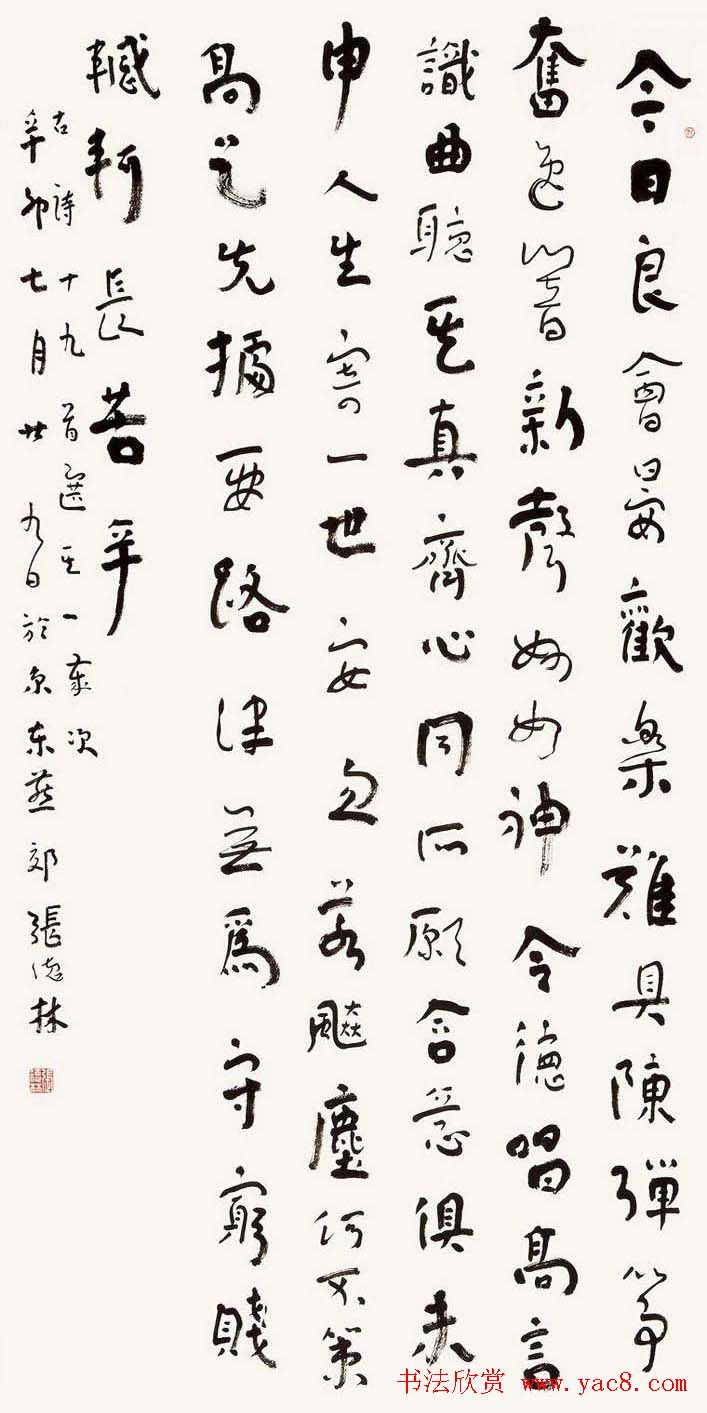 今日良會晏歡樂難具陳彈箏
奮逸響新聲妙如神令德唱高言
識曲聽其真齊心同所願含意俱未
申人生寄一世安忽若飈塵何不策
高足先據要路津無爲守窮賤
轗軻長苦辛
古詩十九首選其一歲次
辛卯七月廿九日於京东燕郊張德林
书法欣赏 www.yac8.com